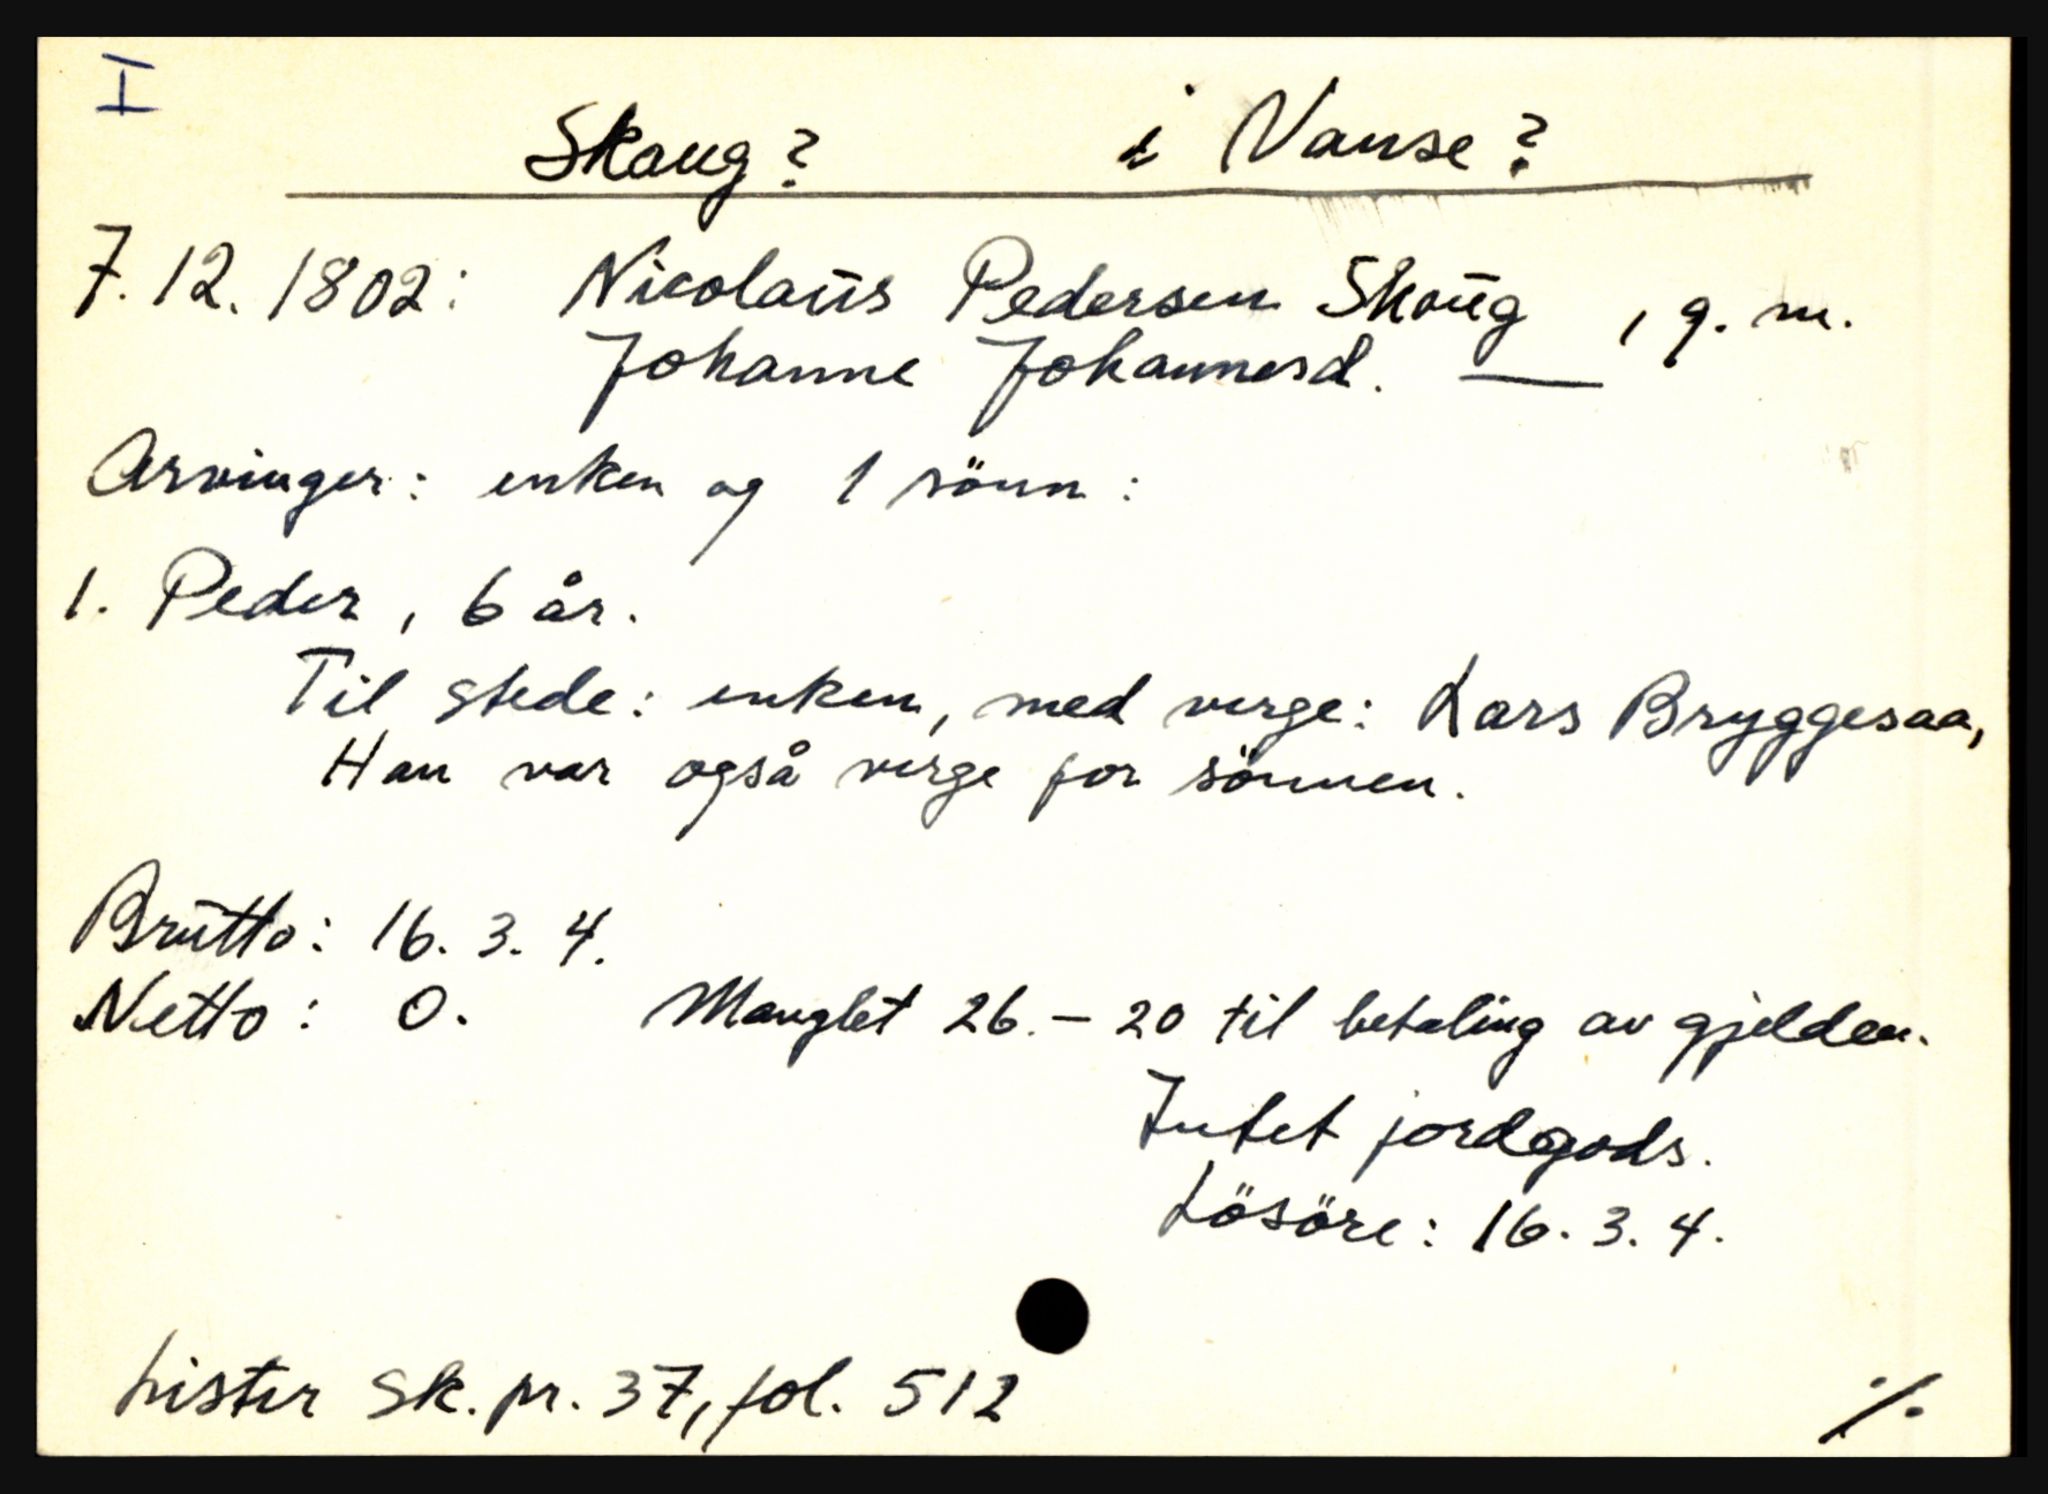 I
Skaug? i Vanse?
7.12.1802: Nicolaūs Pedersen Skaūg, g. m.
Johanne Johannesd. —
Arvinger: enken og 1 sönn:
1. Peder, 6 år.
Til stede: enken, med verge: Lars Bryggesaa,
Han var også verge for sönnen.
Brūtto: 16. 3. 4.
Netto: 0. Manglet 26. – 20 til betaling av gjelden.
Intet jordgods.
Lösöre: 16. 3. 4.
Lister sk. pr. 37, fol. 512
./.